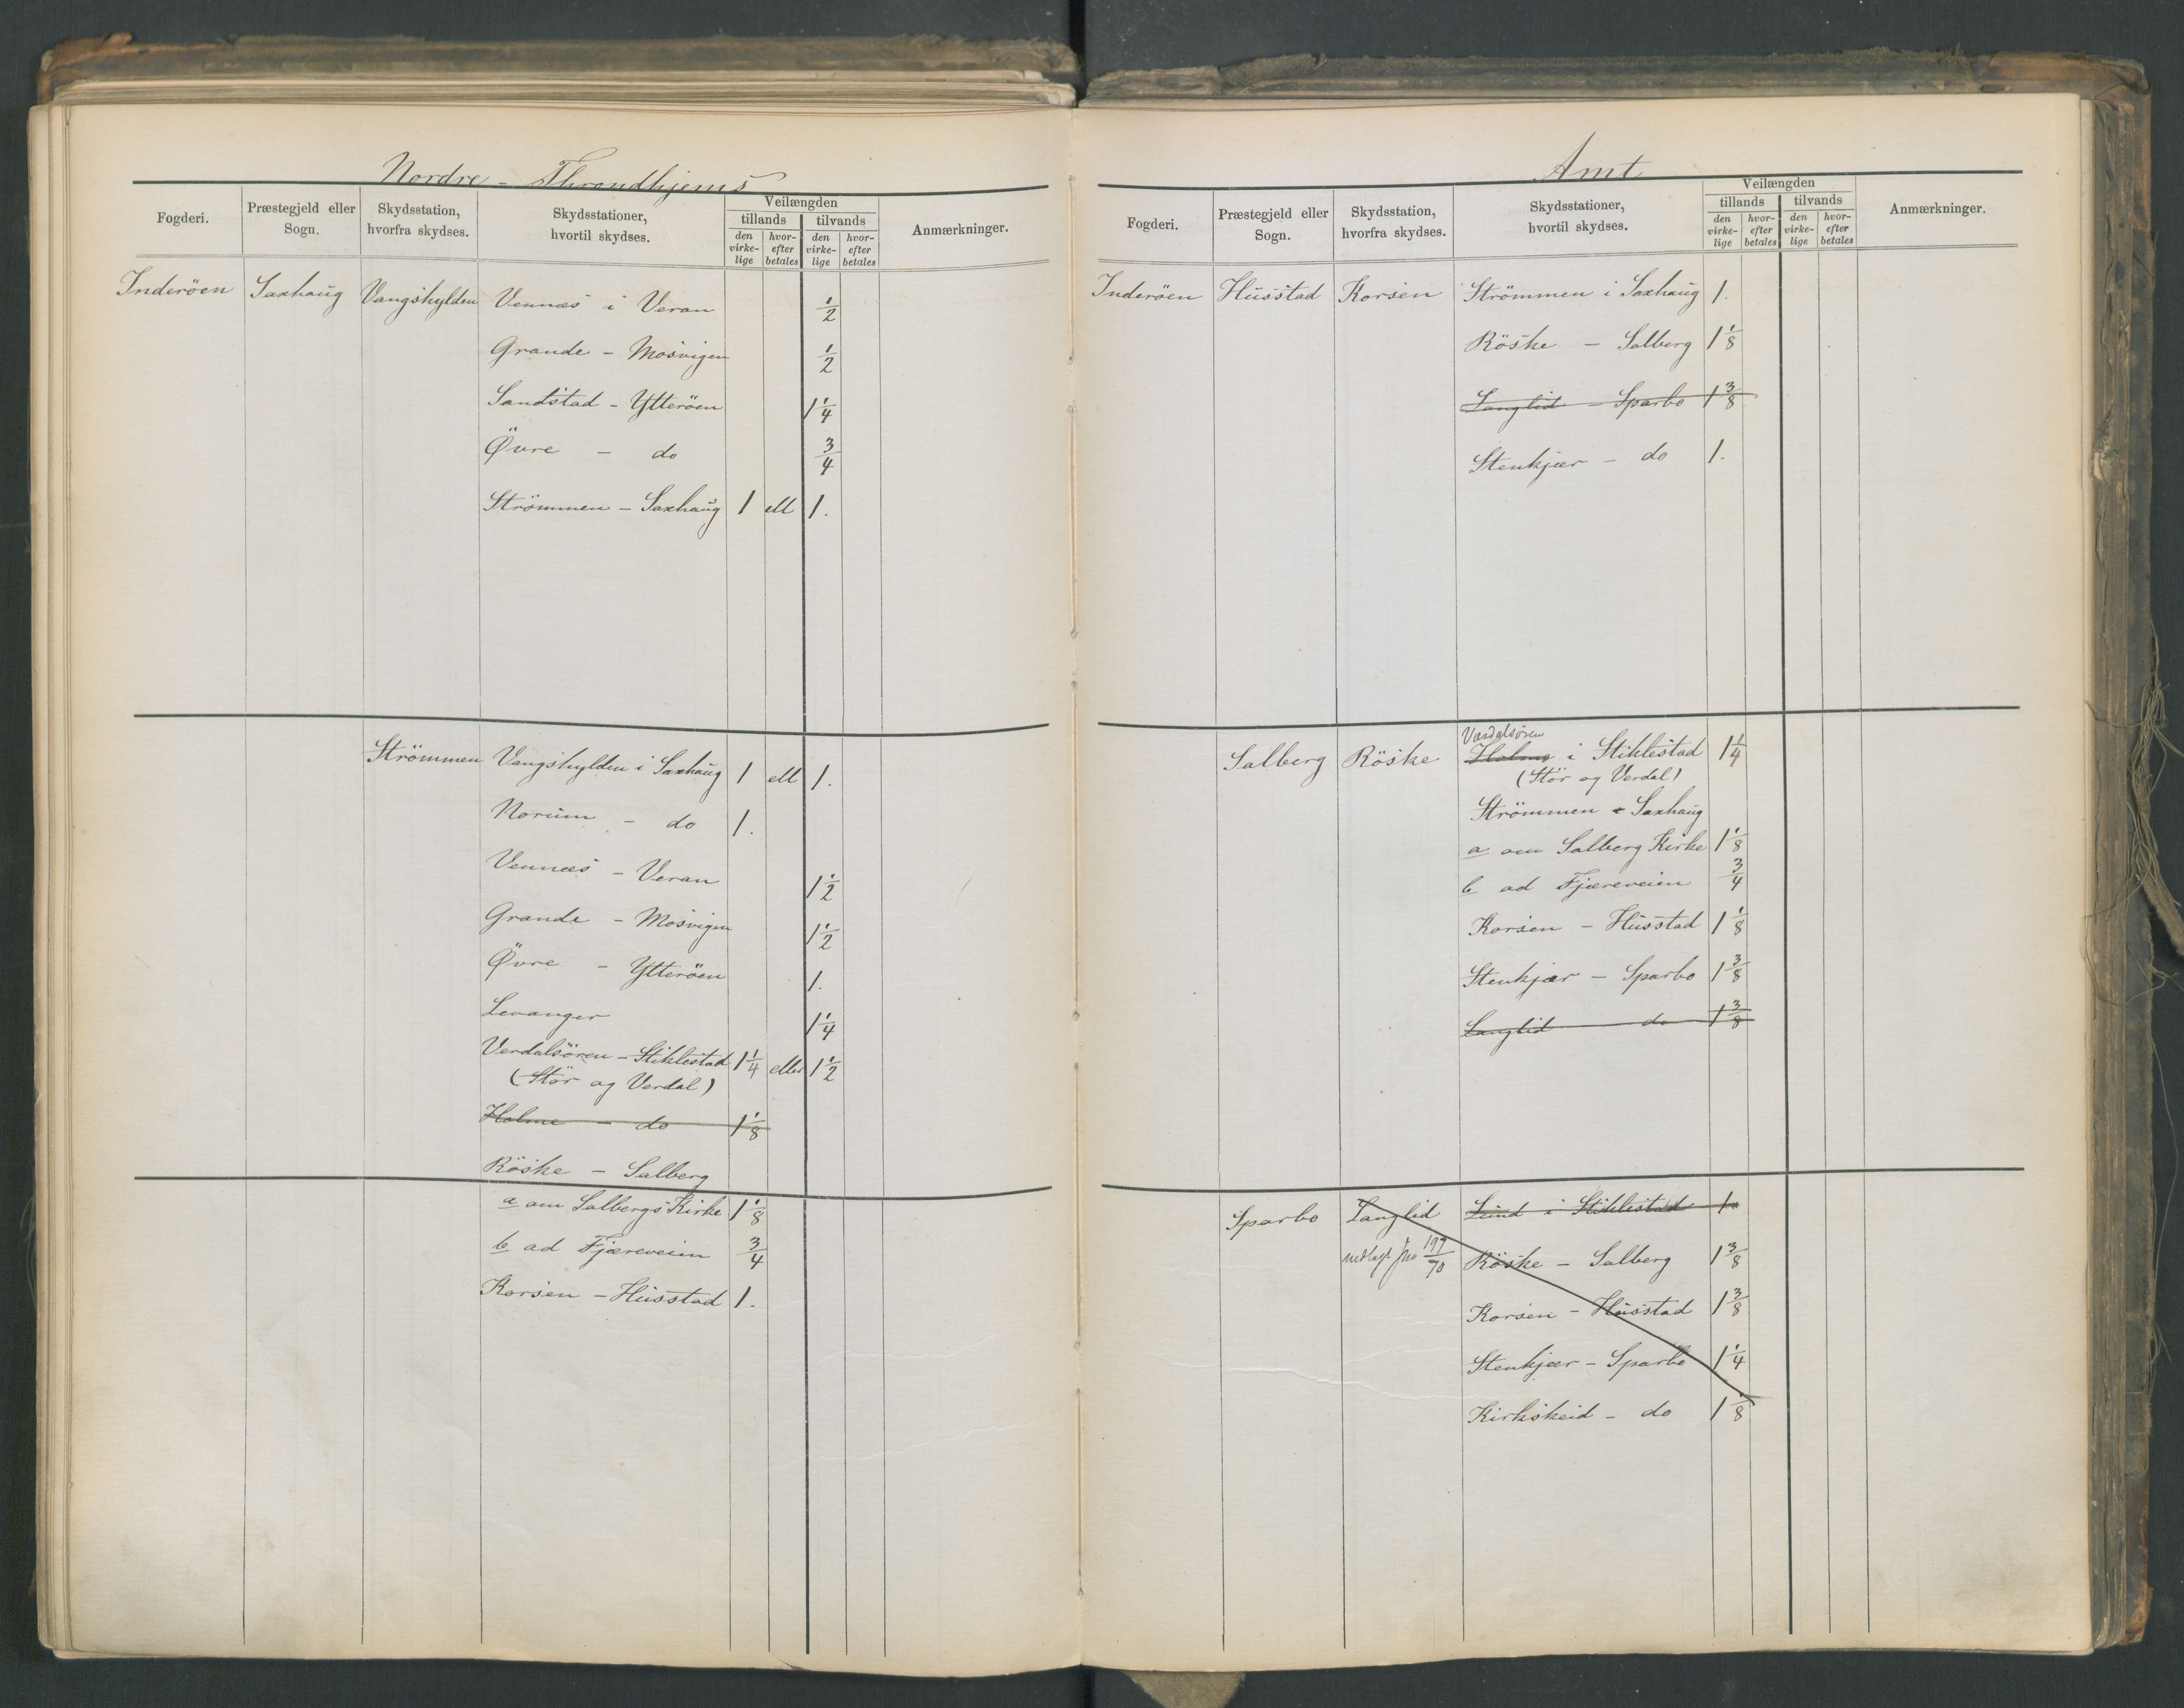 Nordre - Throndhjems
Fogderi.
Præstegjeld eller Sogn.
Skydsstation, hvorfra skydses.
Skydsstationer, hvortil skydses.
Veilængden
tillands tilvands
den virke-lige hvor-efter betales den virke-lige hvor-efter betales
Anmærkninger.
Inderöen Saxhaug Vangshylden Vennæs i Veran 1/2
Grande - Mosvigen 1/2
Sandstad - Ytteröen 1 1/4
Övre - do 3/4
Strömmen - Saxhaug 1 ell 1.
Strömmen Vangshylden i Saxhaug 1 ell 1.
Norum - do 1.
Vennæs - Veran 1 1/2
Grande - Mosvigen 1 1/2
Övre - Ytteröen 1.
Levanger 1 1/4
Verdalsören - Stiklestad 1 1/4 eller 1 1/2
(Stör og Verdal)
Holme - do 1 1/8
Röske - Salberg
a om Salbergs Kirke 1 1/8
b ad Fjæreveien 3/4
Korsen - Husstad 1.
Amt
Fogderi.
Præstegjeld eller Sogn.
Skydsstation, hvorfra skydses.
Skydsstationer, hvortil skydses.
Veilængden
tillands tilvands
den virke-lige hvor-efter betales den virke-lige hvor-efter betales
Anmærkninger.
Inderöen Husstad Korsen Strömmen i Saxhaug 1.
Röske - Salberg 1 1/8
Langlid - Sparbo 1 3/8
Stenkjær - do 1.
Værdalsören
Salberg Röske Holme i Stiklestad 1 1/4
(Stör og Verdal)
Strömmen - Saxhaug
a om Salberg Kirke 1 1/8
b ad Fjæreveien 3/4
Korsen - Husstad 1 1/8
Stenkjær - Sparbo 1 3/8
Langlid do 1 3/8
Sparbo Langlid Lund i Stiklestad 1
nedlagt fra 199/70 Röske - Salberg 1 3/8
Korsen - Husstad 1 3/8
Stenkjær - Sparbo 1 1/4
Kirkskeid - do 1 1/8